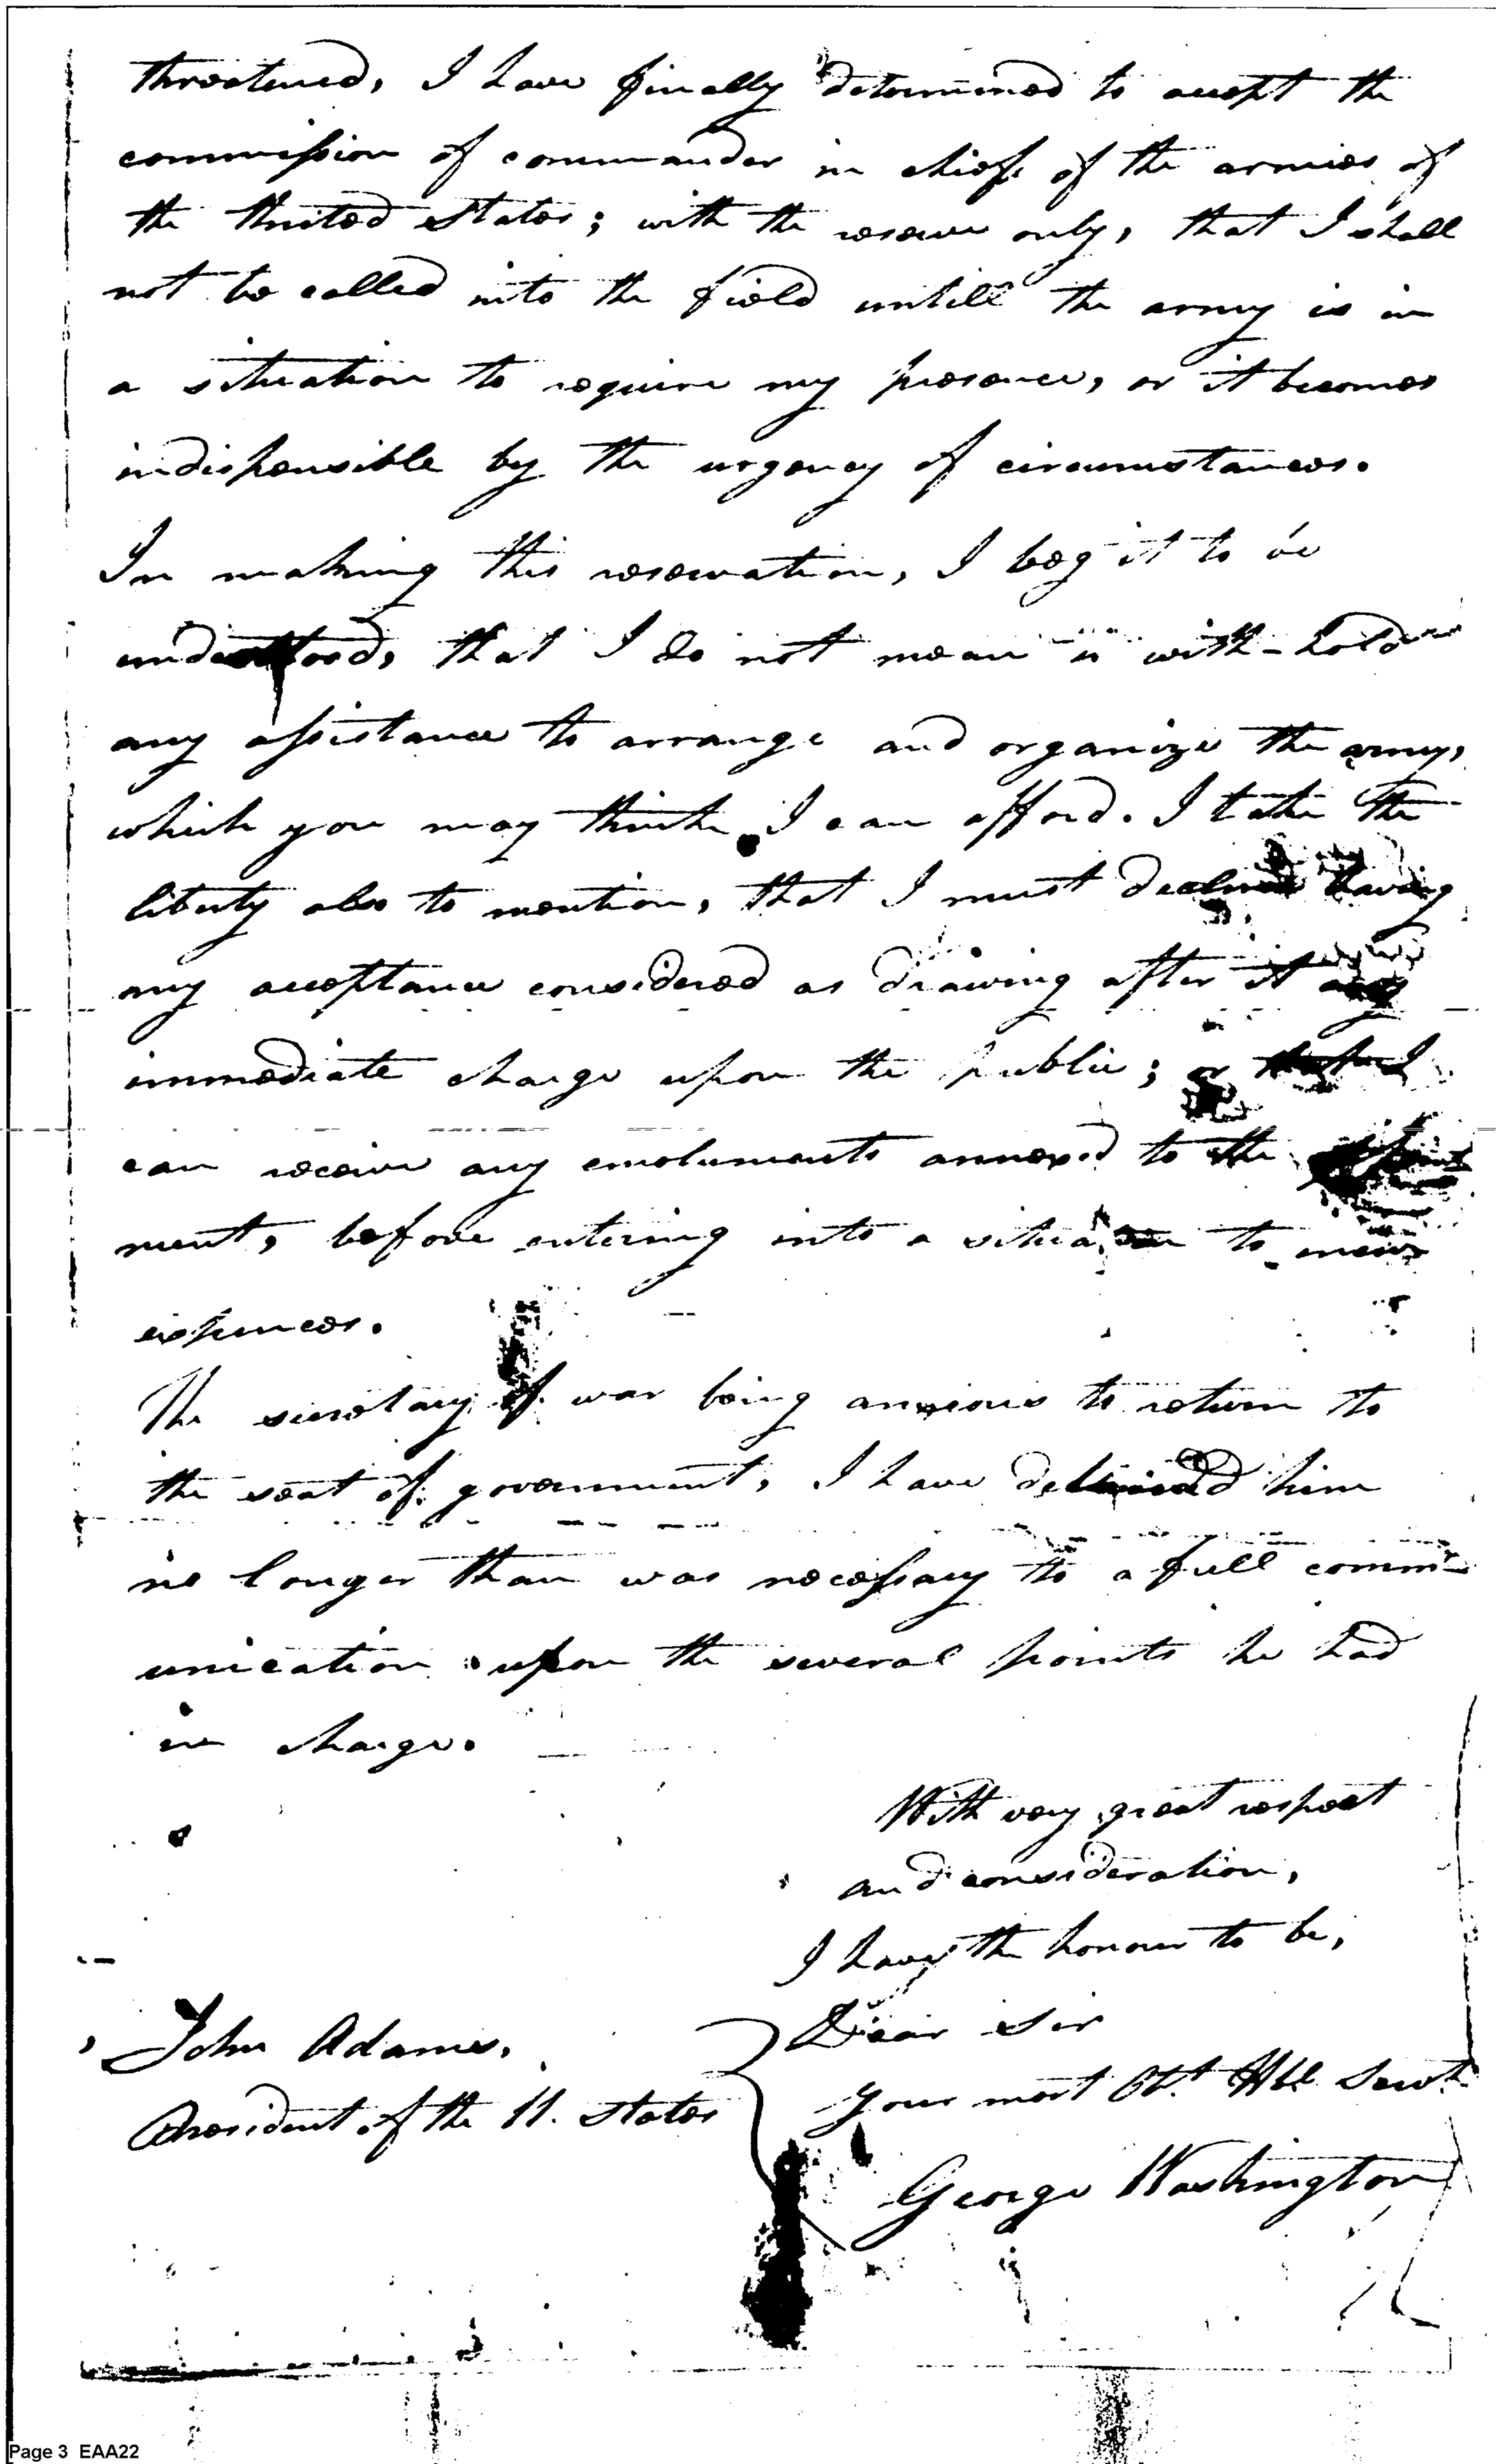 threatened, I have finally determined to accept the
commission of commander in chief of the armies of
the United States; with the reserve only, that I shall
not be called into the field untill the army is in
a situation to require my presence, or it becomes
indispensible by the urgency of circumstances.
In making this reservation, I beg it to be
understood, that I do not mean to with-hold
any assistance to arrange and organize the army,
which you may think I can afford. I take the
liberty also to mention, that I must decline having
my acceptance considered as drawing after it any
immediate charge upon the public; or that I
can receive any emoluments annexed to the appoint
ment, before entering into a situation to incur
expences.
The secretary of war being anxious to return to
the seat of government, I have detained him
no longer than was necessary to a full comm-
unication upon the several points he had
in charge.
With very great respect
and consideration,
I have the honour to be,
Dear Sir
your most Obt. Hbl Servt
John Adams,
President of the U. States
George Washington
Page 3 EAA22